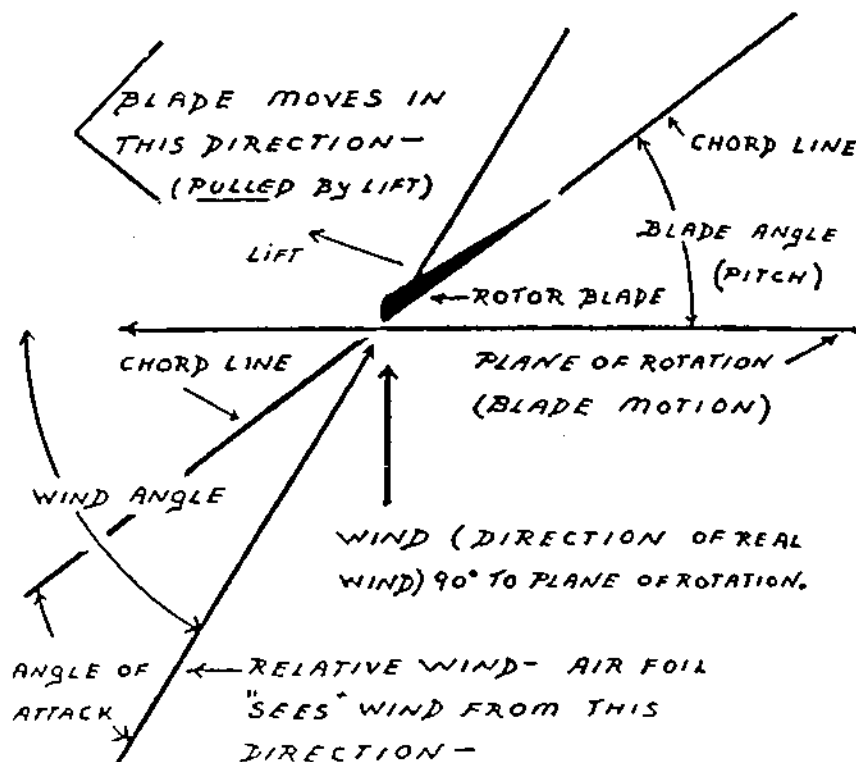 BLADE MOVES IN
THIS DIRECTION —
(PULLED BY LIFT)
LIFT
CHORD LINE
BLADE ANGLE
(PITCH)
ROTOR BLADE
CHORD LINE
PLANE OF ROTATION
(BLADE MOTION)
WIND ANGLE
WIND (DIRECTION OF REAL
WIND) 90° TO PLANE OF ROTATION.
ANGLE OF
ATTACK
RELATIVE WIND - AIR FOIL
"SEES" WIND FROM THIS
DIRECTION —